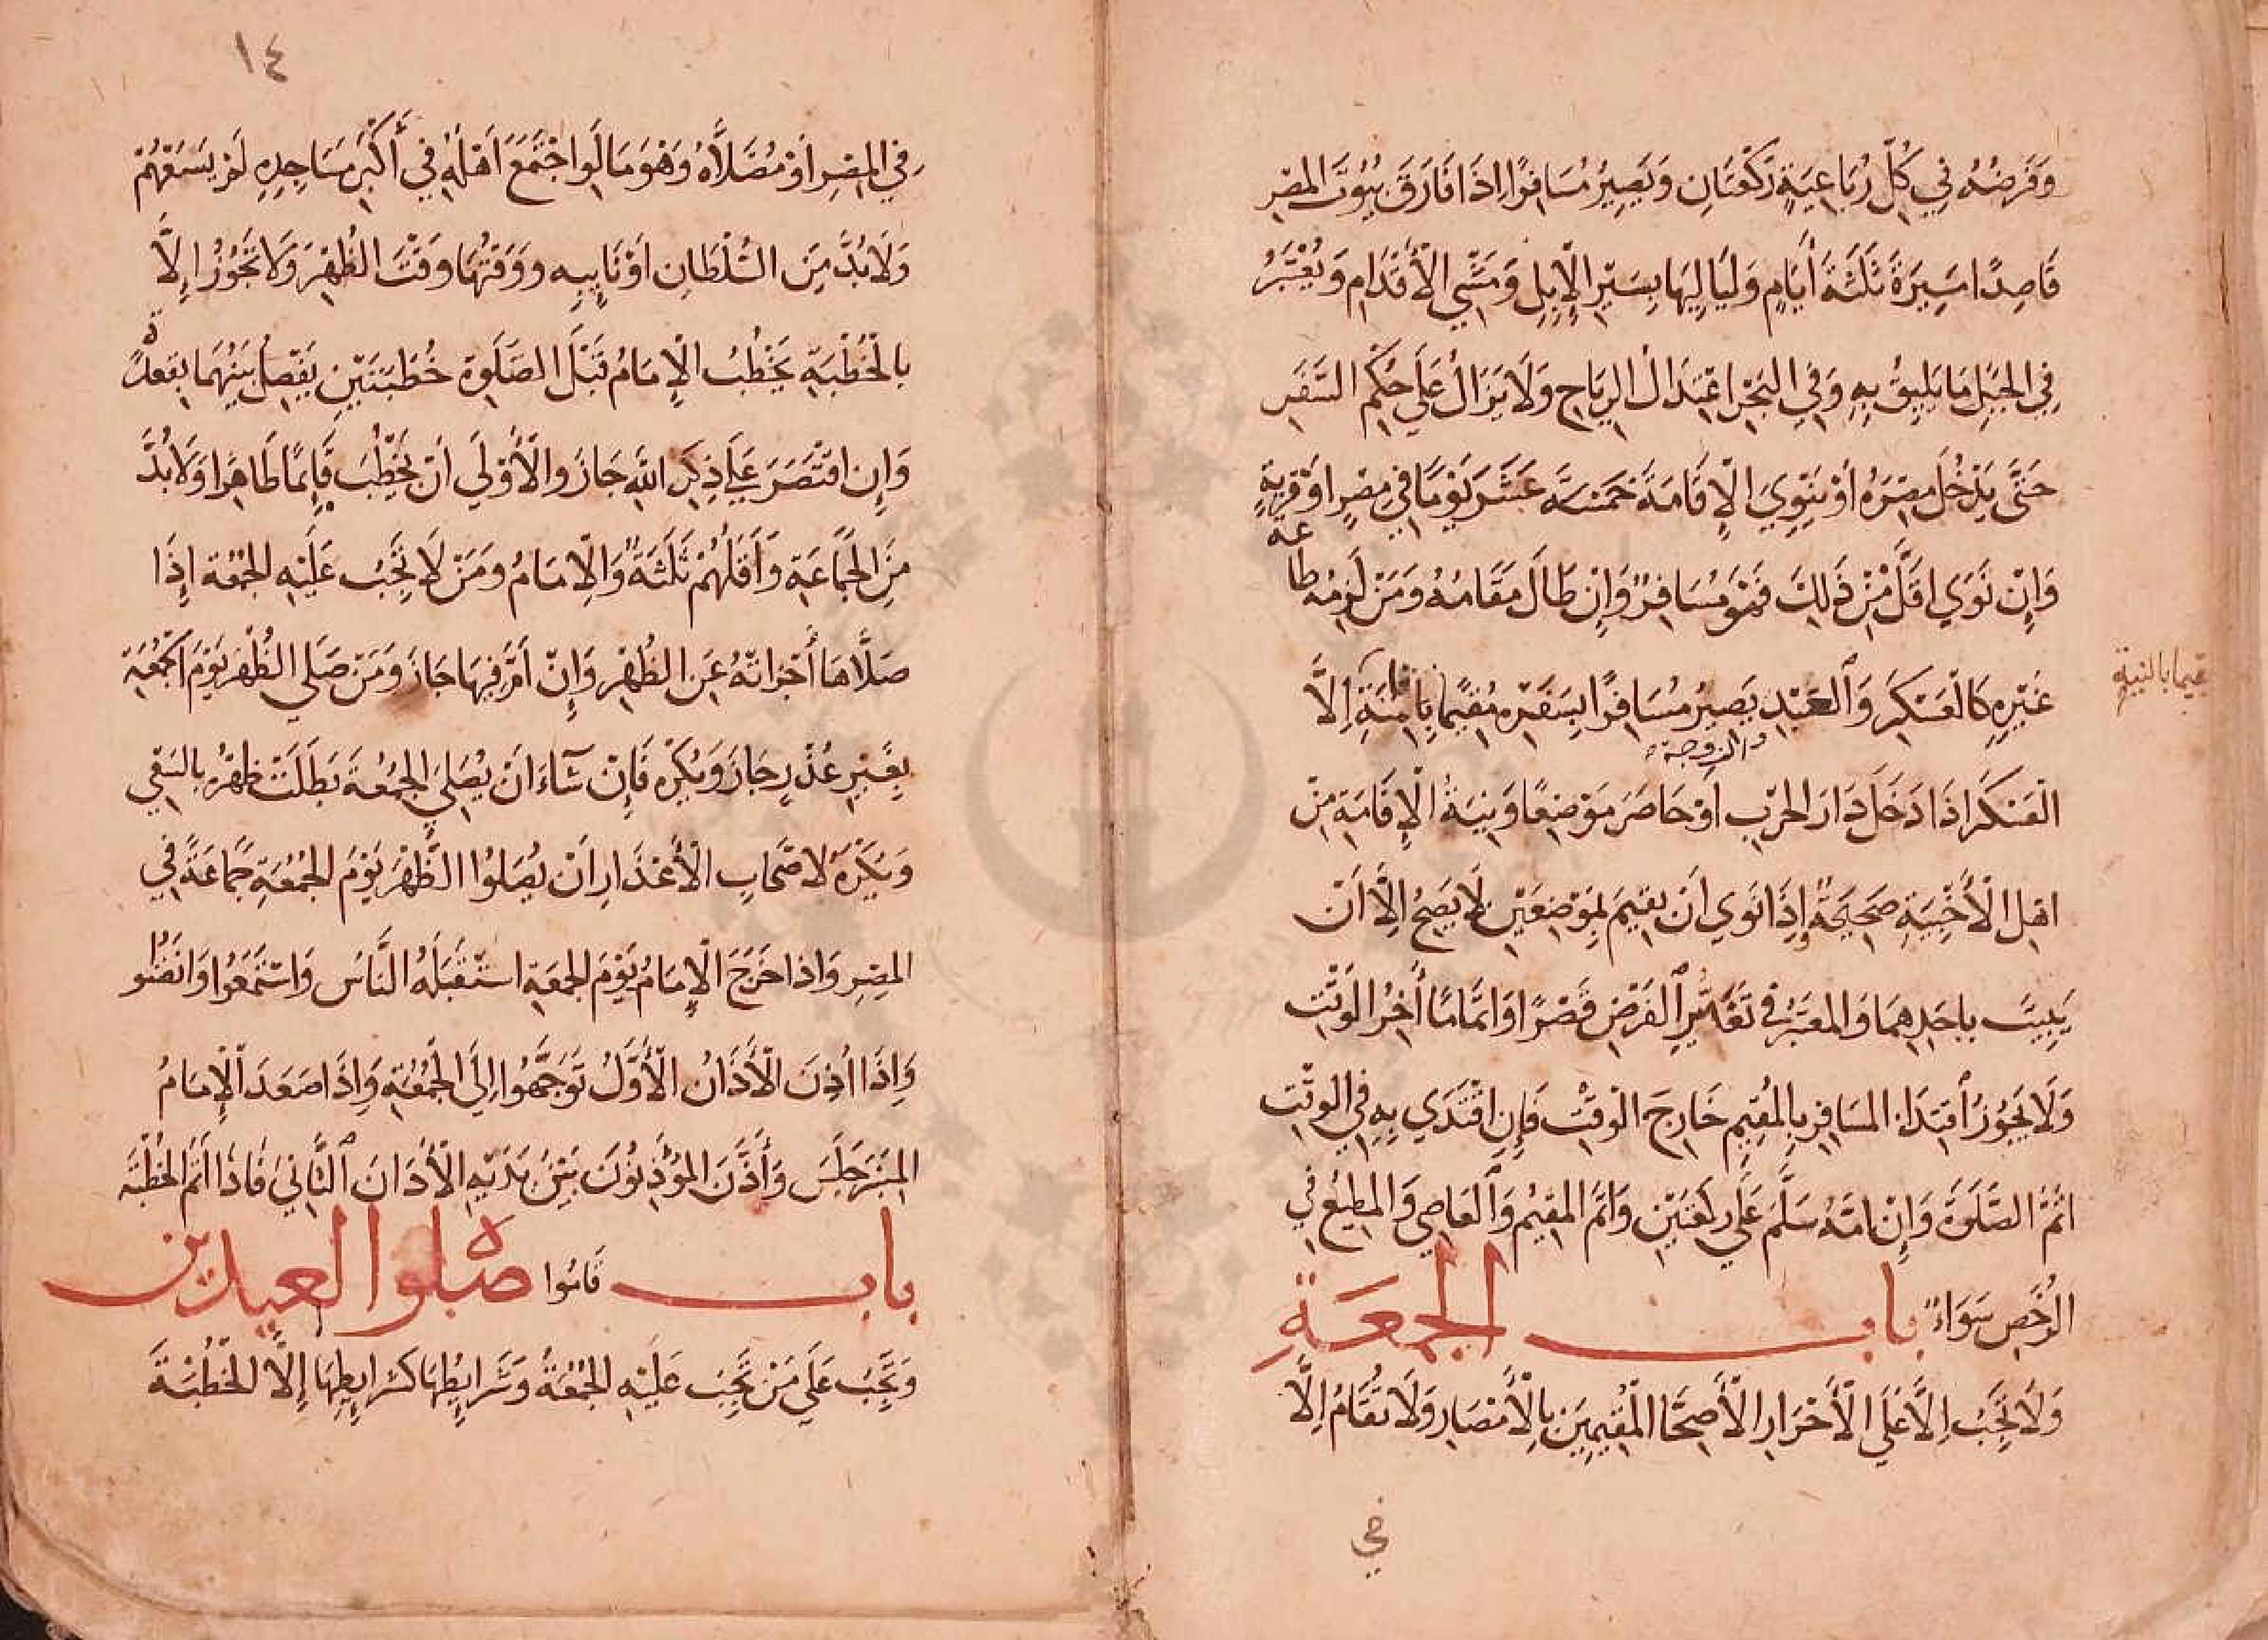 وَفَرضُهُ فِي كُلِّ رُبَاعِيَةٍ رَكْعَتَانِ وَيَصِيرُ مُسَافِرًا اِذَا فَارَقَ بُيُوتَ المِصْرِ
قَاصِدًا مَسِيرَةَ ثَلَثَةَ أَيَامٍ وَلَيَالِيهَا بِسَيْرِ الْإِبِلِ وَمَشْيِ الْأَقْدَامِ وَيُعْتَبَرُ
فِي الجَبَلِ مَا يَلِيقُ بِهِ وَفِي البَحْرِ اعْتِدَالُ الرِيَاحِ وَلَا يَزَالُ عَلَى حُكْمِ السَّفَرِ
حَتَّى يَدْخُلَ مِصْرَهُ اَوْ يَنْوِيَ الْإِقَامَةَ خَمْسَةَ عَشَرَ يَوْمًا فِي مِصْرٍ اَوْ قَرْيَةٍ
وَإِنْ نَوَي اَقَلَّ مِنْ ذَلِكَ فَهُوَ مُسَافِرٌ وَإِنْ طَالَ مَقَامُهُ وَمَنْ لَزِمُه طاعة
غَيْرِهِ كَالْعَسْكَرِ وَالعَبْدِ والزوجة يَصِيرُ مُسَافِرًا بِسَفَرِهِ مُقِيمًا بِاِقَامَتِهِ اِلَّا
مقيما بالنية
الْعَسْكَرَ اِذَا دَخَلَ دَارَ الحَرْبِ اَوْ حَاصَرَ مَوْضِعًا وَنِيَةُ الْإِقَامَةِ مِنْ
اهل الْأَخْبِيَةِ صَحِيحَةٌ وَإِذَا نَوَي اَنْ يُقِيمَ بِمَوْضِعَيْنِ لَا يَصِحُ اِلَّا اَنْ
يَبِيتَ بِاحَدِهِمَا وَالمعتبَرُ فِي تَغَيُّرِ الفَرْضِ قَصْرًا وَاتمَامًا أخِرُ الوَقْتِ
وَلَا يَجُوزُ اقتِدَاءُ المسَافِرِ بِالمُقِيمِ خَارِجَ الْوَقْتِ فَإِنِ اقْتَدَي بِهِ فِي الوقْتِ
اتَمَّ الصَّلَوةَ وَإِنْ امَّهُ سَلَّمَ عَلَي رَكْعَتَيْنِ وَاتَمَّ المقِيمُ وَالعَاصِي وَالمطِيعُ فِي
الرُخَصِ سَوَاءٌ باب الجمعة
وَلَا تَجِبُ اِلَّا عَلَى الْأَحْرَارِ الْأَصِحَّا المُقِيمِينَ بِالْأَمْصَارِ وَلَا تُقَامُ اِلَّا
في
١٤
فِي المِصْرِ اَوْ مُصَلَّاهُ وَهُوَ مَا لَوِ اجْتَمَعَ اَهْلُهُ فِي أَكْبَرِ مَسَاجِدِهِ لَمْ يَسَعْهُمْ
وَلَابُدَّ مِنَ السُّلْطَانِ اَوْ نَايِبِهِ وَوَقْتُهَا وَقْتَ الظُهْرِ وَلَا تَجُوزُ إِلَّا
بِالْخُطْبَةِ يَخْطُبُ الْإِمَامُ قَبْلَ الصَلَوةِ خُطْبَتَيْنِ يَفْصِلُ بَيْنَهُمَا بِقَعدَةٍ
وَإِن اقْتَصَرَ عَلَي ذِكِرِ اللّهِ جَازَ وَالْأَوْلَي اَنْ يَخْطُبَ قَايِمًا طَاهِرًا وَلَابُدَّ
مِنَ الجَمَاعَةِ وَأَقَلُهُمْ ثَلَثَةٌ وَالْاِمَامُ وَمَنْ لَا تَجِبُ عَلَيْهِ الجُمْعَةُ إِذَا
صَلَّاهَا أَجْزَاتْهُ عَنِ الظُهْرِ وَإِنْ اَمَّ فِيهَا جَازَ وَمَنْ صَلَي الظُهْرَ يَوْمَ الجُمُعَةِ
بِغَيْرِ عُذْرٍ جَازَ وَيُكْرَهُ فَإِنْ شَآءَ اَنْ يُصَلِيَ الجُمُعَةَ بَطَلَتْ ظُهْرُهُ بِالسَعْيِ
وَيُكْرَهُ لِاَصْحَابِ الْأَعْذَارِ اَنْ يُصَلُوا الظُّهْرَ يَوْمَ الجُمُعَةِ جَمَاعَةً فِي
المِصْرِ وَاذا خَرَجَ الْإِمَامُ يَوْمَ الجمعَةِ استقْبَلَهُ النَّاسُ وَاسْتَمَعُوا وَانْصَتُوا
وَاِذَا اُذِنَ الْأَذَانُ الْأَوَّلُ تَوَجَّهُوا اِلَى الجُمُعَةِ وَاِذَا صَعَدَ الْإِمَامُ
المِنْبَرَ جَلَسَ وَأَذَّنَ المُؤَذِنُونَ بَيْنَ يَدَيْهِ الْأَذَانَ الثَّانِيَ فَاذَا اَتَمَّ الخُطْبَةَ
قَامُوا باب صلوة العيدين
وَتَجِبُ عَلَي مَنْ تَجِبُ عَلَيْهِ الجُمْعَةُ وَشَرَايِطُهَا كَشَرَايِطِهَا إِلَّا الخُطْبَةَ